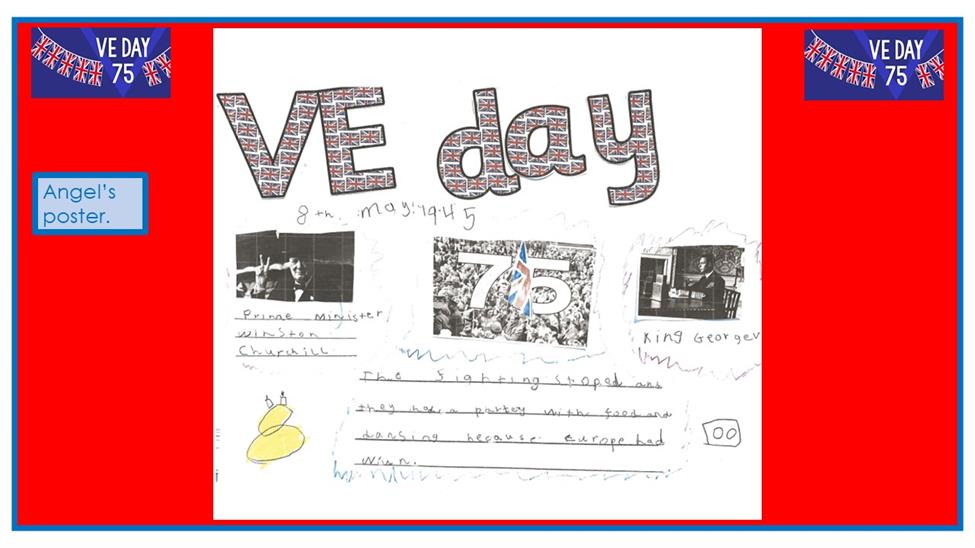 VE DAY
75
VE DAY
75
VE day
Angel's
poster.
8th. may.1945
75
Prime Minister
Winston
Churchill.
King Georgev
The fighting stoped and
they had a partey with food and
dansing because europe had
Wiun.